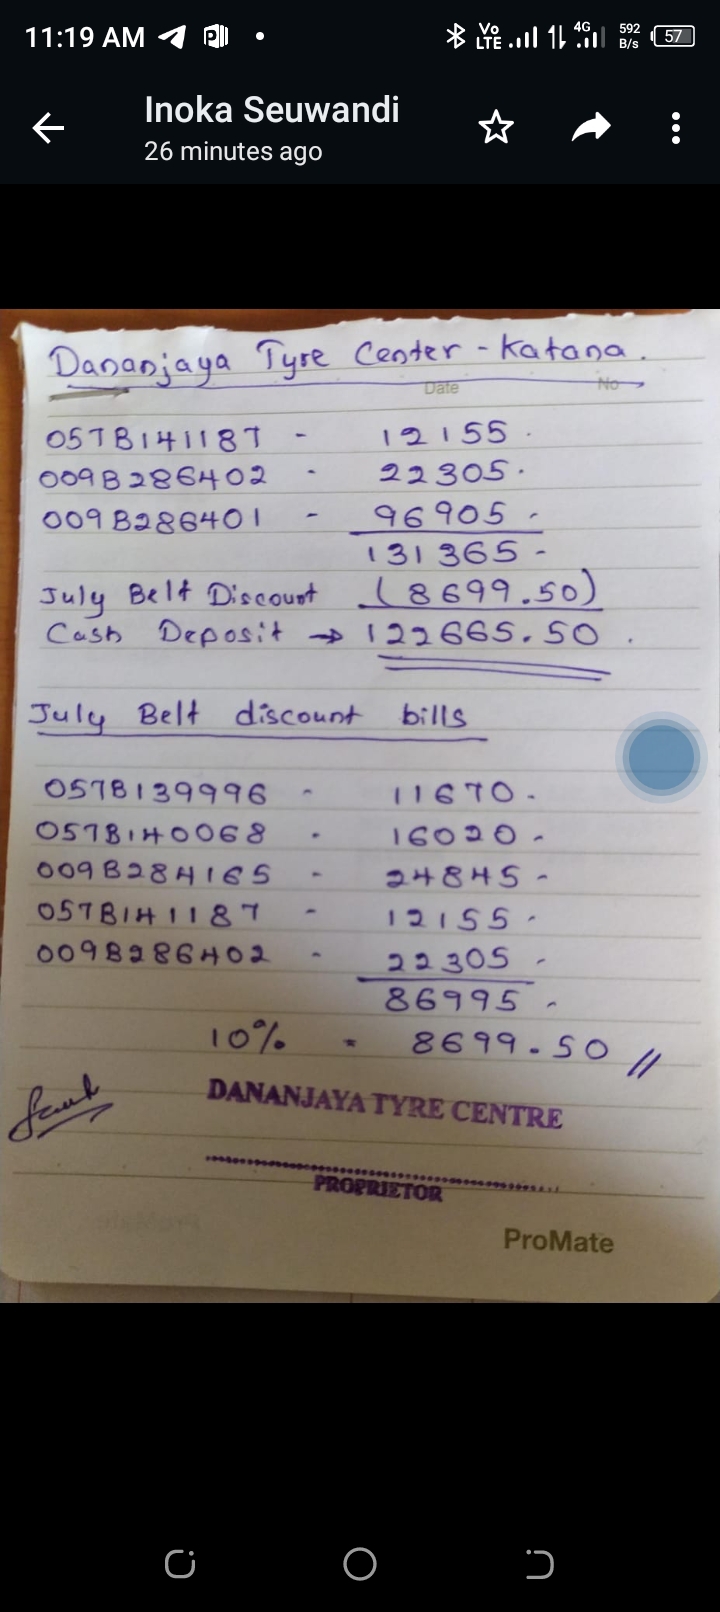 11:19 AM
Vo LTE 4G 592 B/s 57
Inoka Seuwandi
26 minutes ago
Dananjaya Tyre Center - Katana.
Date No
057B141187 - 12155.
009B286402 - 22305.
009B286401 - 96905.
131365 -
July Belt Discount (8699.50)
Cash Deposit → 122665.50.
July Belt discount bills
057B139996 - 11670.
057B140068 - 16020-
009B284165 - 24845-
057B141187 - 12155.
009B286402 - 22305-
86995-
10% = 8699.50 //
DANANJAYA TYRE CENTRE
PROPRIETOR
ProMate